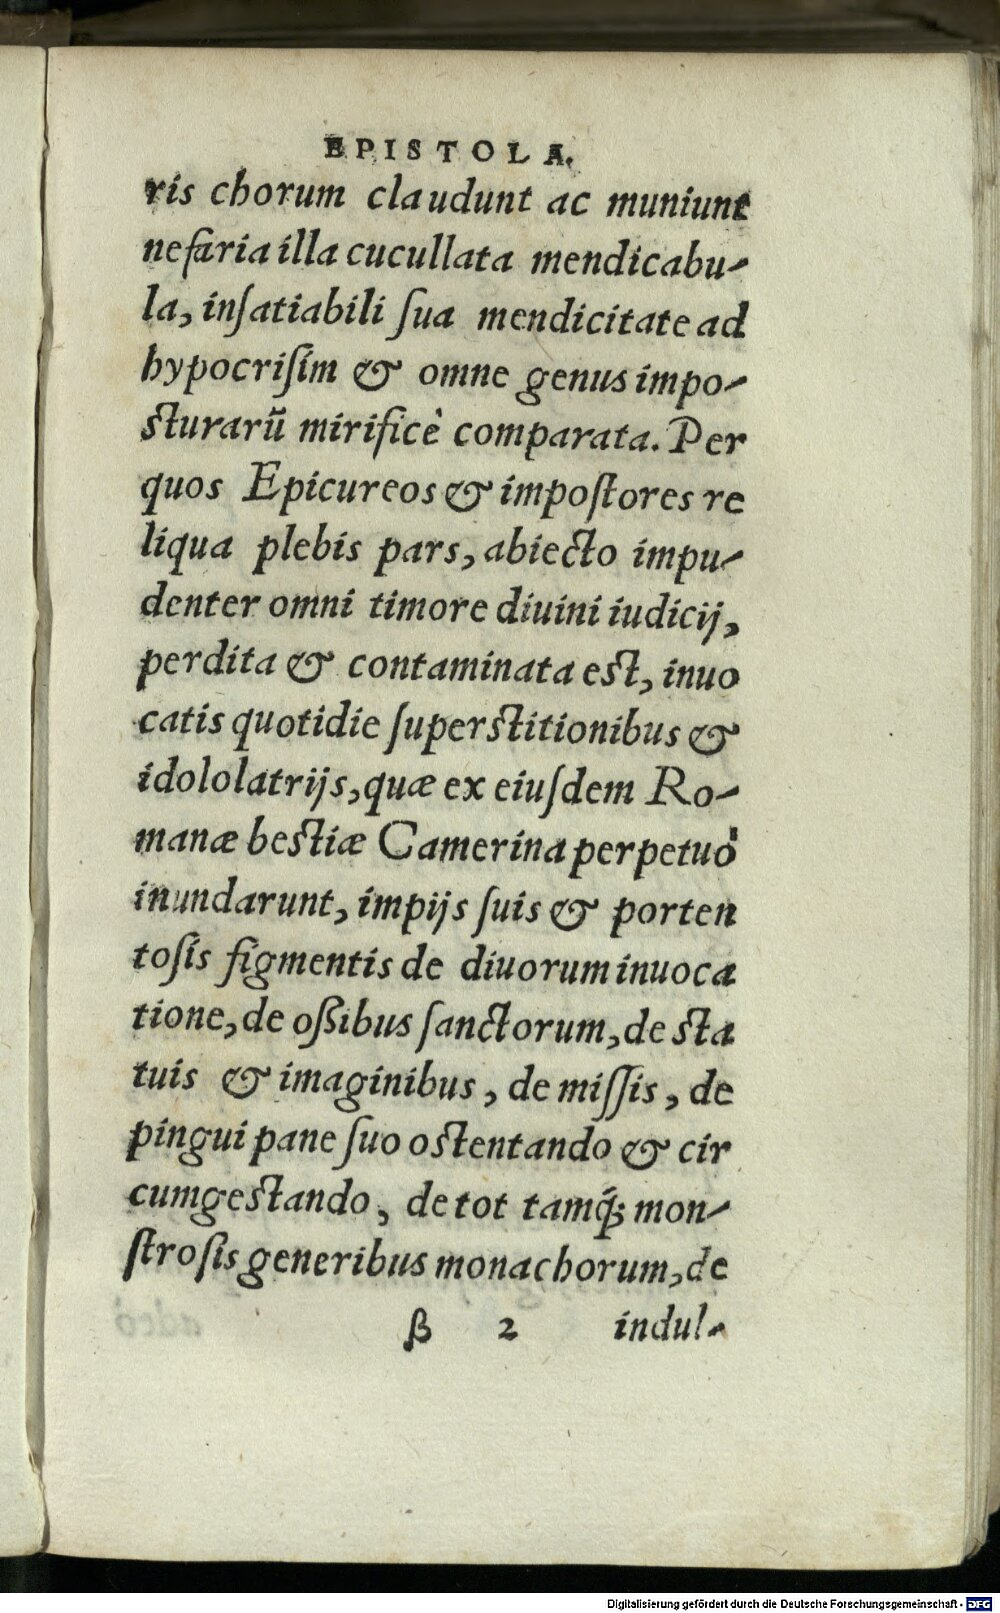 EPISTOLA.
ris chorum claudunt ac muniunt
nefaria illa cucullata mendicabu-
la, inſatiabili ſua mendicitate ad
hypocriſim & omne genus impo-
ſturarũ mirificè comparata. Per
quos Epicureos & impoſtores re
liqua plebis pars, abiecto impu-
denter omni timore diuini iudicij,
perdita & contaminata eſt, inuo
catis quotidie ſuperſtitionibus &
idololatrijs, quæ ex eiuſdem Ro-
manæ beſtiæ Camerina perpetuò
inundarunt, impijs ſuis & porten
toſis figmentis de diuorum inuoca
tione, de oßibus ſanctorum, de ſta
tuis & imaginibus, de miſſis, de
pingui pane ſuo oſtentando & cir
cumgeſtando, de tot tamq́; mon-
ſtroſis generibus monachorum, de
β 2 indul-
Digitalisierung gefördert durch die Deutsche Forschungsgemeinschaft - DFG